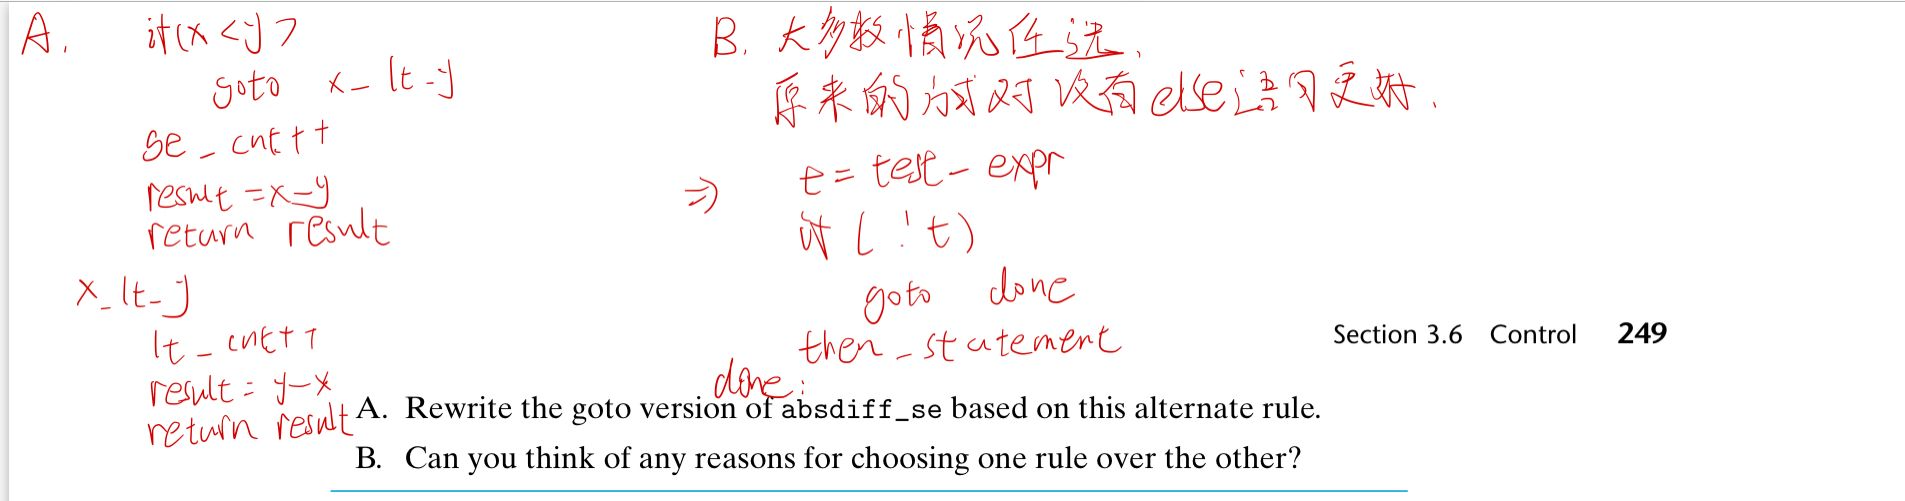 A. if(x<y)
goto x_lt_y
se_cnt++
result=x-y
return result
x_lt_y
lt_cnt++
result=y-x
return result
B. 大多数情况任选.
原来的方式对没有else语句更好.
⇒ t=test-expr
if(!t)
goto done
then_statement
done:
Section 3.6 Control 249
A. Rewrite the goto version of absdiff_se based on this alternate rule.
B. Can you think of any reasons for choosing one rule over the other?